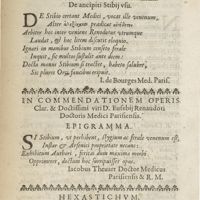 De ancipiti Stibij vsu.
DE Stibio certant Medici, vocat ille venenum,
Alter
praedicat
Arbiter hoc inter veniens Renodæus vtrumque
Laudat, & hoc litem discutit eloquio,
Ignari in manibus Stibium censeto ferale
Inquit, sic multos sustulit ante diem:
Docta manus Stibium si tractet, habeto salubre,
Sic plures Orci faucibus eripuit.
I. de Bourges Med. Paris.
IN COMMENDATIONEM OPERIS
Clar. & Doctissimi viri D. Eusebij Renaudoti
Doctoris Medici Parisiensis.
EPIGRAMMA.
SI Stibium, vt perhibent, stygium ac ferale venenum est,
Instar & Arsenici proprietate necans:
Exhibitum Authori, feritas dum maxima morbi
Opprimeret, dictum hoc surripuisset opus.
Iacobus Thevart Doctor Medicus
Parisiensis & R. M.
HEXASTICHVM.